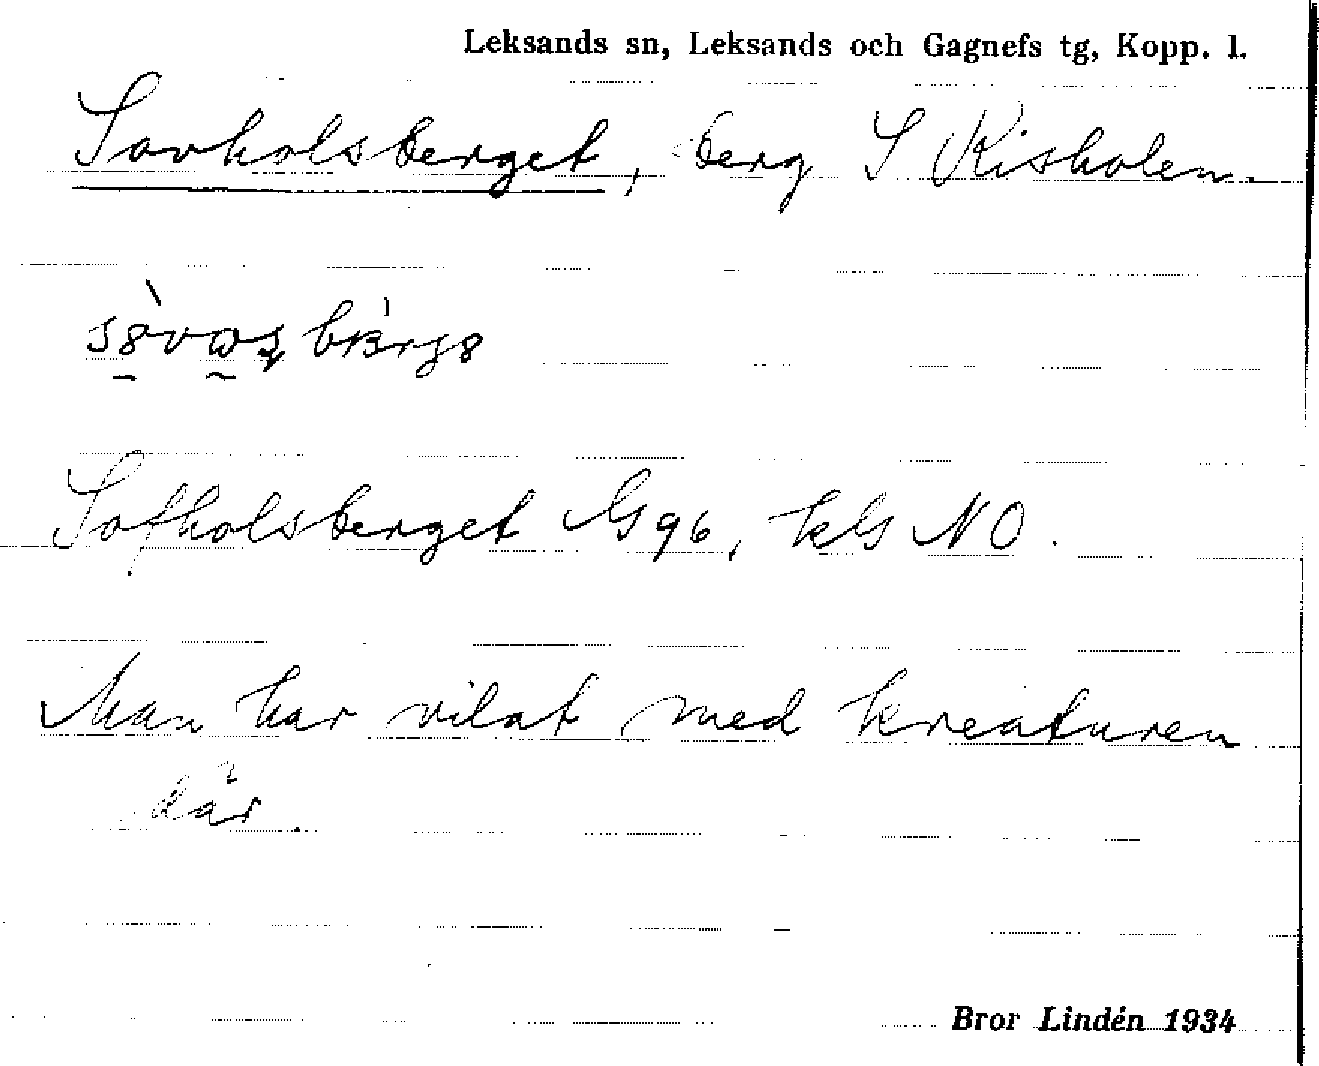 Leksands sn, Leksands och Gagnefs tg, Kopp. l.
Sovholsberget, berg S Risholen.
Sofholsberget G96, kbl NO.
Man har vilat med kreaturen
där.
Bror Lindén 1934